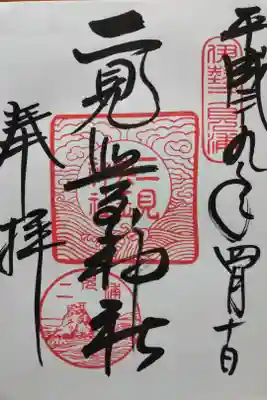 伊勢二見浦
平成二九年四月十日
二見興玉神社
奉拝
二見浦